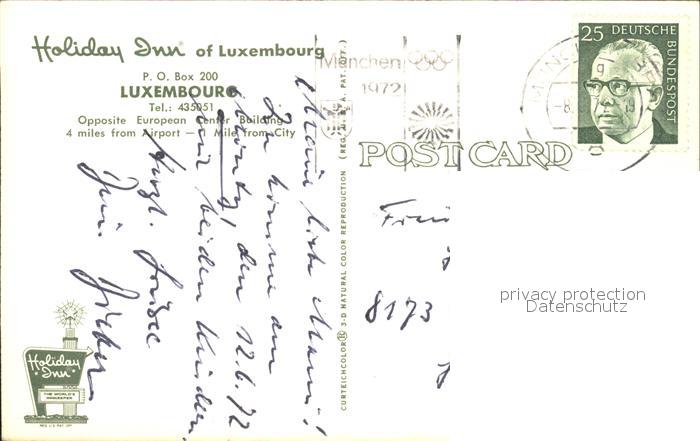 Holiday Inn of Luxembourg
P. O. Box 200
LUXEMBOURG
Tel.: 435051
Opposite European Center Building
4 miles from Airport — Mile from City
Meine liebe Mami!
Ich komme am
Montag, den 12.6.72
mit beiden Kindern.
Herzl. Grüsse
Dein
Holiday
Inn
THE WORLD'S
INNKEEPER
REG. U.S. PAT. OFF.
CURTEICHCOLOR® 3-D NATURAL COLOR REPRODUCTION (REG. U.S.A. PAT. OFF.)
München
1972
25 DEUTSCHE
BUNDESPOST
POST CARD
8173
privacy protection
Datenschutz